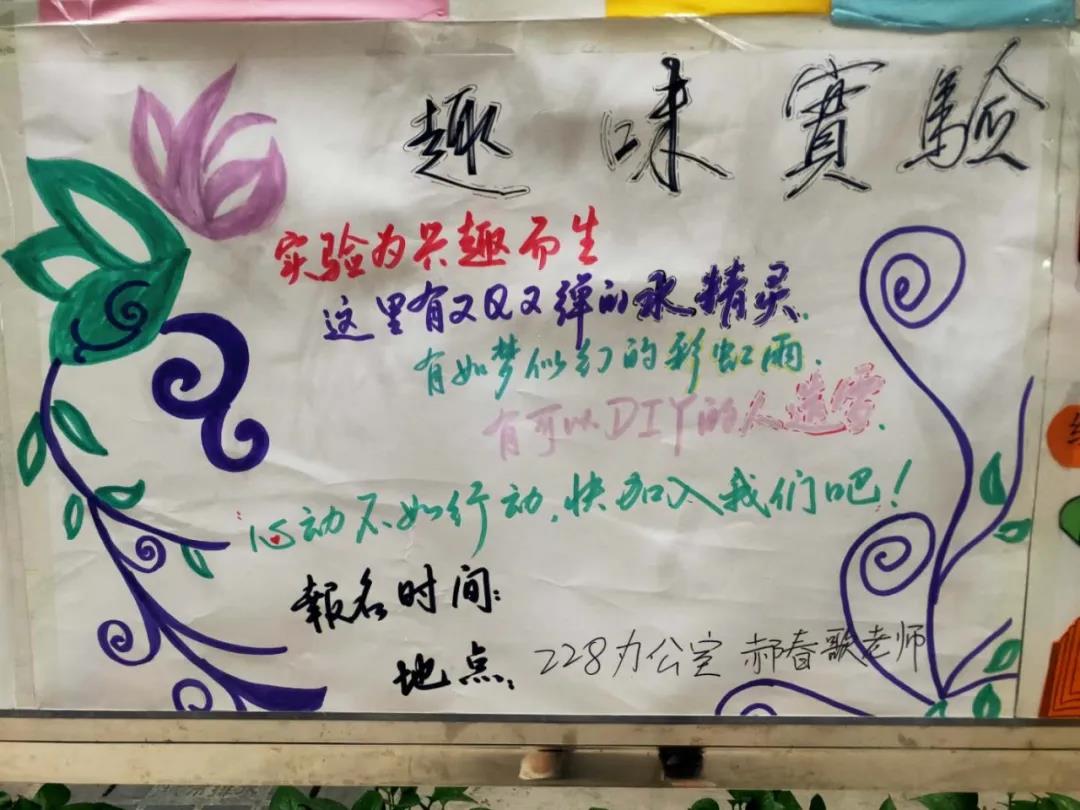 趣味實驗
实验为兴趣而生
这里有又Q又弹的水精灵.
有如梦似幻的彩虹雨.
有可以DIY的人造雪.
心动不如行动,快加入我们吧!
報名时间:
地点: 228办公室 郝春歌老师